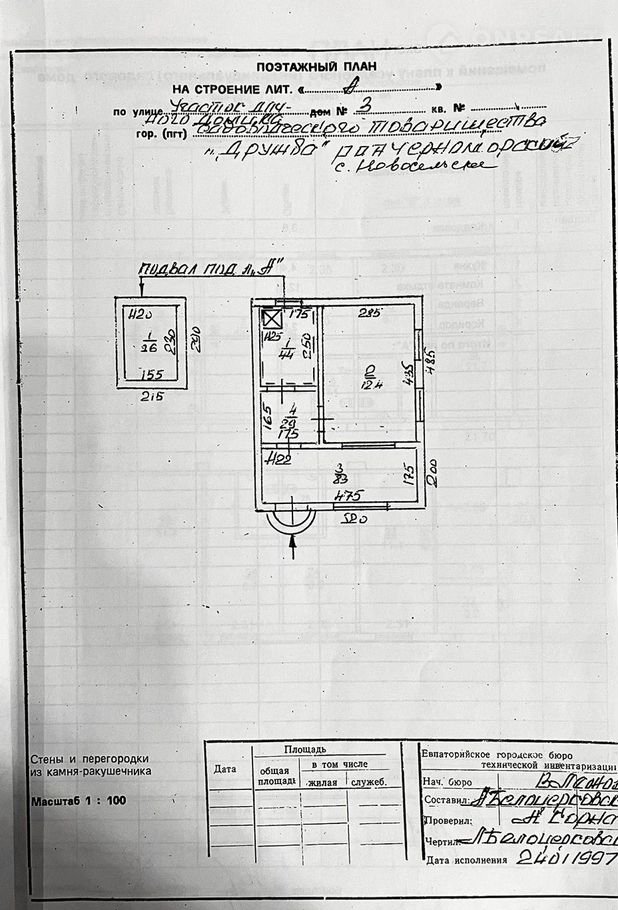 ПОЭТАЖНЫЙ ПЛАН
НА СТРОЕНИЕ ЛИТ. « А »
по улице Участок дач- дом № 3 кв. №
ного домика
гор. (пгт) садоводческого товарищества
"Дружба" р-он Черноморский
с. Новосельское
ПОДВАЛ ПОД Л. "А"
H20
1
36
230
290
155
215
175
H25
1
44
250
285
2
12.4
435
485
165
4
29
175
H22
3
83
175
200
475
520
Стены и перегородки
из камня-ракушечника
Масштаб 1 : 100
Дата
Площадь
общая
площадь
в том числе
жилая
служеб.
Евпаторийское городское бюро
технической инвентаризаци
Нач. бюро
Составил: Л Белоцерковск
Проверил:
Чертил: Л Белоцерковс
Дата исполнения 24 01 1997